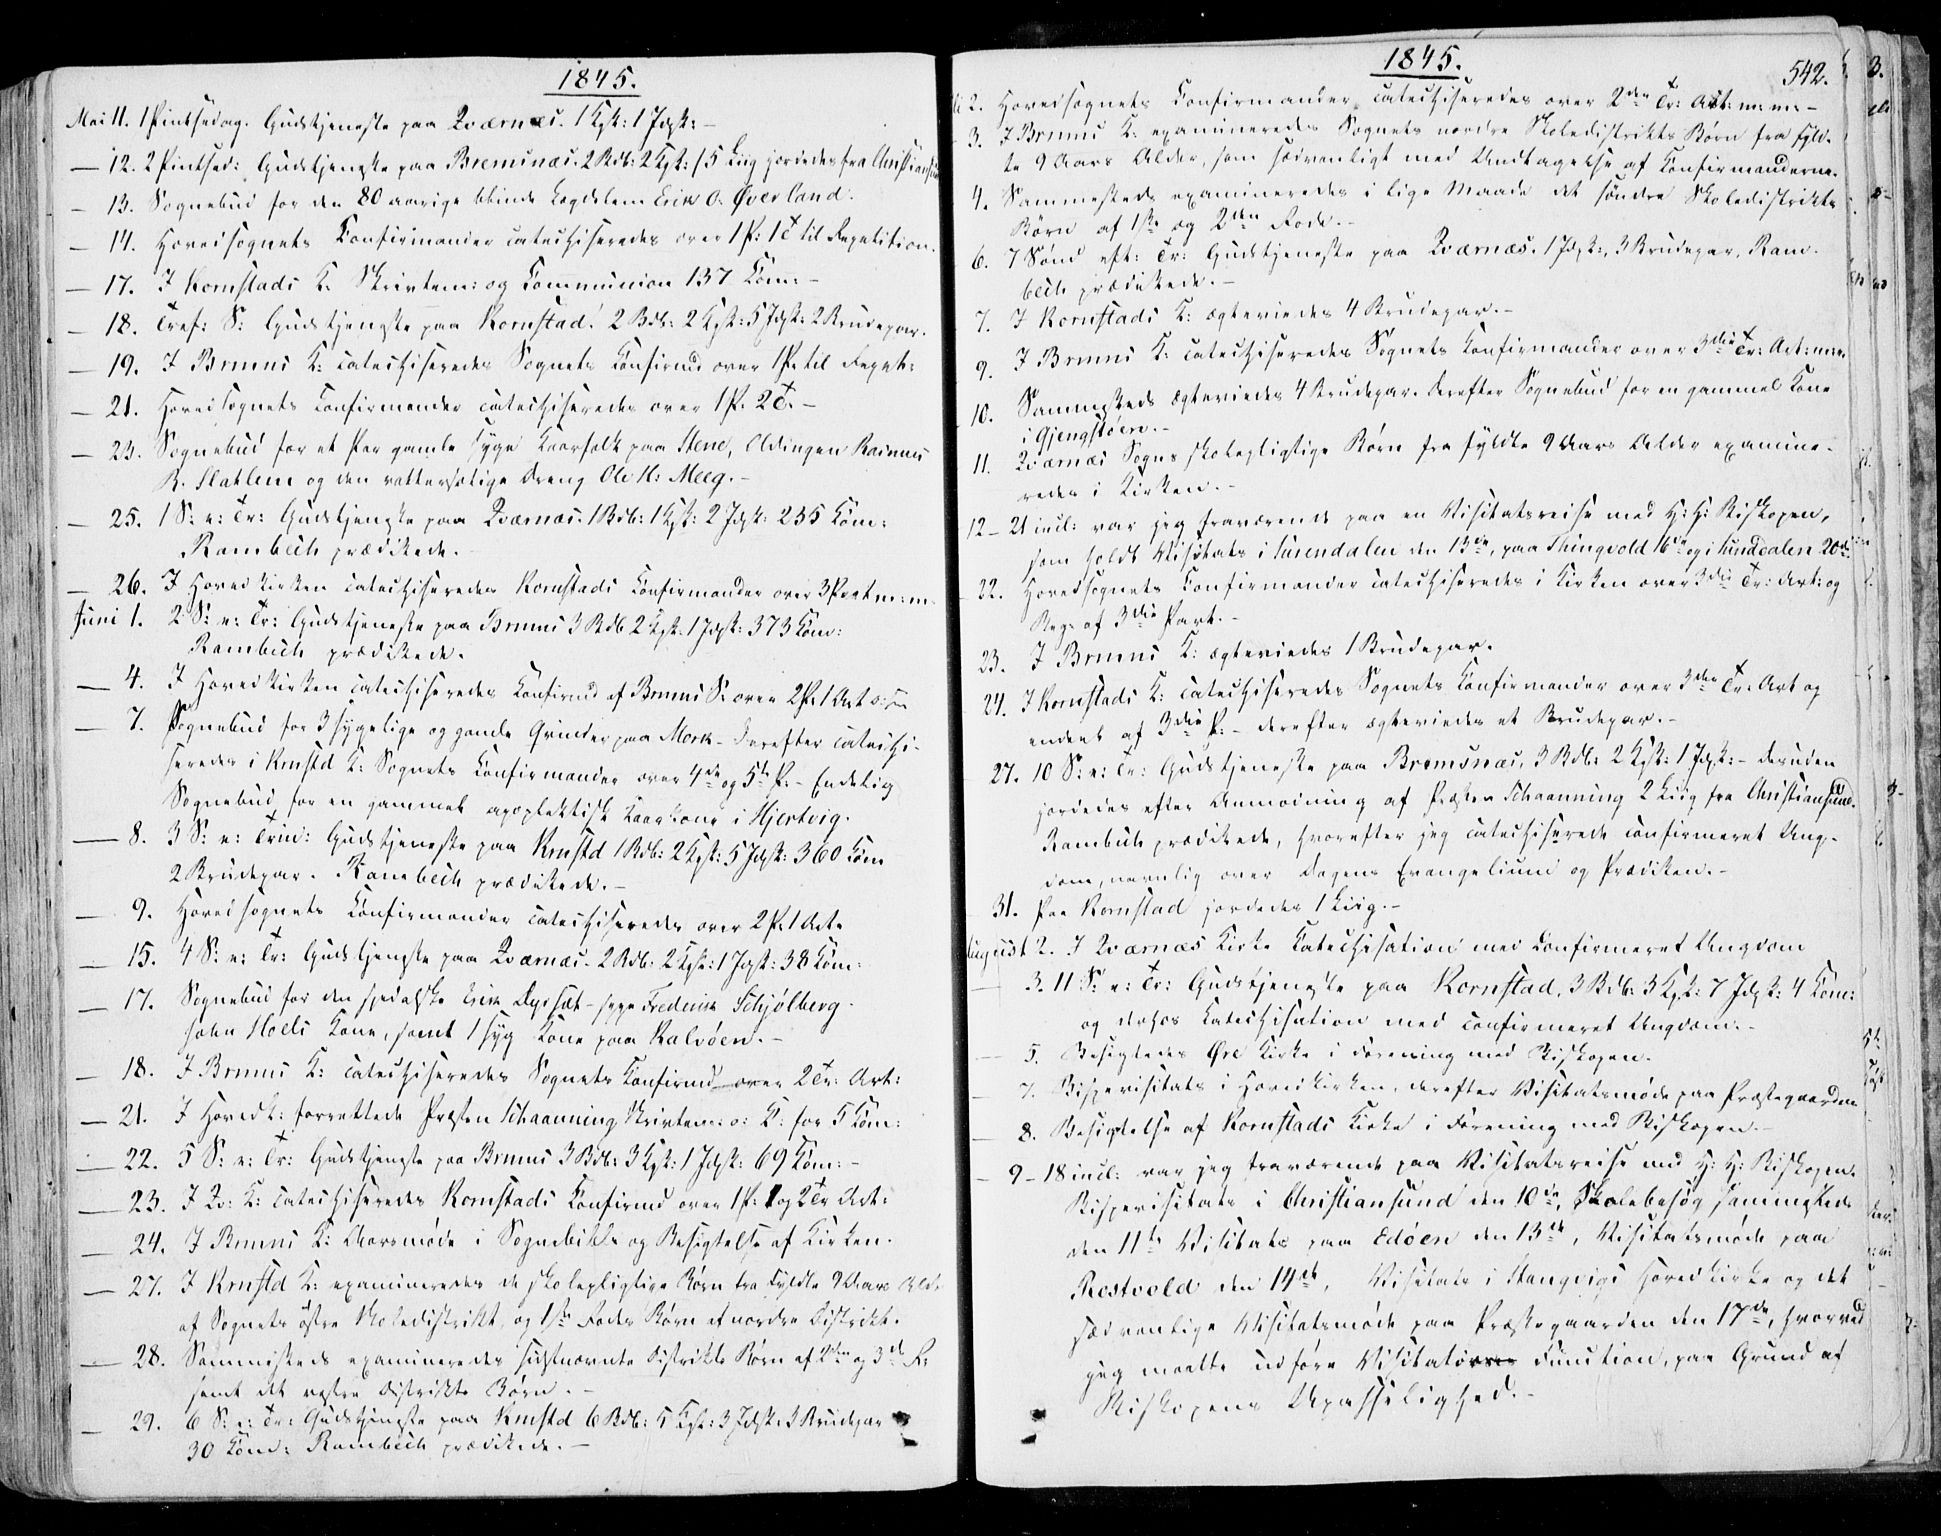 1845.
Mai 11. 1 Pintsedag. Gudstjeneste paa Qværnæs. 1 Kgk: 1 Jdgk: –
— 12. 2 Pintsed: Gudstjeneste paa Bremsnæs. 2 Bdb: 2 Kgk: 15 Liig jordedes fra Christiansund
— 13. Sognebud for den 80 aarige blinde Lægdslem Erik O. Øverland.
— 14. Hovedsognets Confirmander catechiseredes over 1 P: 1 T til Repetition.
— 17. I Kornstads K. Skriftem: og Communion 137 Com: –
— 18. Tref: S: Gudstjeneste paa Kornstad. 2 Bdb: 2 Kgk: 5 Jdgk: 2 Brudepar.
— 19. I Brmns K: catechiseredes Sognets Confirmd over 1 P. til Repet:
— 21. Hovedsognets Confirmander catechiseredes over 1 P. 2 T. –
— 23. Sognebud for et Par gamle syge Kaarfolk paa Stene, Oldingen Rasmus
R. Slatlem og den vattersotige Dreng Ole H: Meeg. –
— 25. 1 S: e: Tr: Gudstjeneste paa Qværnæs. 1 Bdb: 1 Kgk: 2 Jdgk: 235 Com:
Rambech prædikede.
— 26. I Hovedkirken catechiseredes Kornstads Confirmander over 3 Part m: m.
Juni 1. 2 S: e: Tr: Gudstjeneste paa Brmns 3 Bdb 2 Kgk. 1 Jdgk: 373 Com:
Rambech prædikede.
— 4. I Hovedkirken catechiseredes Confirmd af Brmns S: over 2 P. 1 Art o: s.
— 7. Sognebud for 3 sygelige og gamle Qvinder paa Mork – Derefter catechi-
seredes i Krnstd K: Sognets Confirmander over 4de og 5te P. – Endelig
Sognebud for en gammel apoplektisk Kaarkone i Hjertvig.
— 8. 3 S: e: Trin: Gudstjeneste paa Krnstd 1 Bdb: 2 Kgk: 5 Jdgk: 360 Com
2 Brudepar. Rambech prædikede. –
— 9. Hovedsognets Confirmander catechiseredes over 2 P. 1 Art.
— 15. 4 S: e: Tr: Gudstjeneste paa Qværnæs. 2 Bdb: 2 Kgk: 1 Jdgk: 38 Com:
— 17. Sognebud for den spedalske Erik Dyrsæt – syge Frederik Schjølberg.
John Hoels Kone, samt 1 syg Kone paa Kalvøen. –
— 18. I Brmns K: catechiseredes Sognets Confirmd over 2 Tr: Art:
— 21. I Hovedk: forrettede Præsten Schaanning Skriftem: o: K: for 5 Com:
— 22. 5 S: e: Tr: Gudstjeneste paa Brmns 3 Bdb: 3 Kgk: 1 Jdgk: 69 Com: –
— 23. I Qv: K: catechiseredes Kornstads Confirmd over 1 P: 1 og 2 Tr Art:
— 24. I Brmns K: Aarsmøde i Sognebibl. og Besigtelse af Kirken.
— 27. I Krnstd K: examineredes de skolepligtige Børn fra fyldte 9 Aars Alder
af Sognets østre Skoledistrikt, og 1ste Rodes Børn af nordre Distrikt.
— 28. Sammesteds examineredes sidstnævnte Distrikts Børn af 2den og 3die R.
samt det vestre Distrikts Børn. –
— 29. 6 S: e: Tr: Gudstjeneste paa Krnstd 6 Bdb: 5 Kgk: 3 Jdgk: 3 Brudepar
30 Com: Rambech prædikede. –
1845.
542.
2. Hovedsognets Confirmander catechiseredes over 2den Tr: Art: m: m: –
3. I Brmns K: examineredes Sognets nordre Skoledistrikts Børn fra fyld-
te 9 Aars Alder, som sædvanligt med Undtagelse af Confirmanderne.
4. Sammesteds examineredes i lige Maade det søndre Skoledistrikts
Børn af 1ste og 2den Rode. –
6. 7 Sønd eft: Tr: Gudstjeneste paa Qværnæs. 1 Jdgk:, 3 Brudepar, Ram-
bech prædikede. –
7. I Kornstads K: ægteviedes 4 Brudepar. –
9. I Brmns K: catechiseredes Sognets Confirmander over 3die Tr: Art: m: m.
10. Sammesteds ægteviedes 4 Brudepar. Derefter Sognebud for en gammel Kone
i Gjengstøen. –
11. Qværnæs Sogns skolepligtige Børn fra fyldte 9 Aars Alder examine-
redes i Kirken. –
12 – 21 incl: var jeg fraværende paa en Visitatsreise med H: H: Biskopen,
som holdt Visitats i Surendalen den 13de, paa Thingvold 16de og i Sunddalen 20de
22. Hovedsognets Confirmander catechiseredes i Kirken over 3die Tr: Art: og
Beg: af 3die Part. –
23. I Brmns K: ægteviedes 1 Brudepar.
24. I Kornstads K: catechiseredes Sognets Confirmander over 3die Tr: Art og
endeel af 3die P: – derefter ægteviedes et Brudepar. –
27. 10 S: e: Tr: Gudstjeneste paa Bremsnæs, 3 Bdb: 2 Kgk: 1 Jdgk: – desuden
jordedes efter Anmodning af Præsten Schaanning 2 Liig fra Christiansund.
Rambech prædikede, hvorefter jeg catechiserede confirmeret Ung-
dom, navnlig over Dagens Evangelium og Prædiken. –
31. Paa Kornstad jordedes 1 Liig. –
August 2. I Qværnæs Kirke Catechisation med Confirmeret Ungdom
3. 11 S: e: Tr: Gudstjeneste paa Kornstad. 3 Bdb: 3 Kgk: 7 Jdgk: 4 Com:
og dehos Catechisation med confirmeret Ungdom. –
— 5. Besigtedes Øre Kirke i Forening med Biskopen.
— 7. Bispevisitats i Hovedkirken, derefter Visitatsmøde paa Præstegaarden
— 8. Besigtelse af Kornstads Kirke i Forening med Biskopen. –
— 9 – 18 incl: var jeg fraværende paa Visitatsreise med H: H: Biskopen.
Bispevisitats i Christiansund den 10de, Skolebesøg sammesteds
den 11te Visitats paa Edøen den 13de, Visitatsmøde paa
Rostvold den 14de, Visitats i Stangvigs Hovedkirke og det
sædvanlige Visitatsmøde paa Præstegaarden den 17de, hvorved
jeg maatte udføre Visitators Function, paa Grund af
Biskopens Upasselighed. –